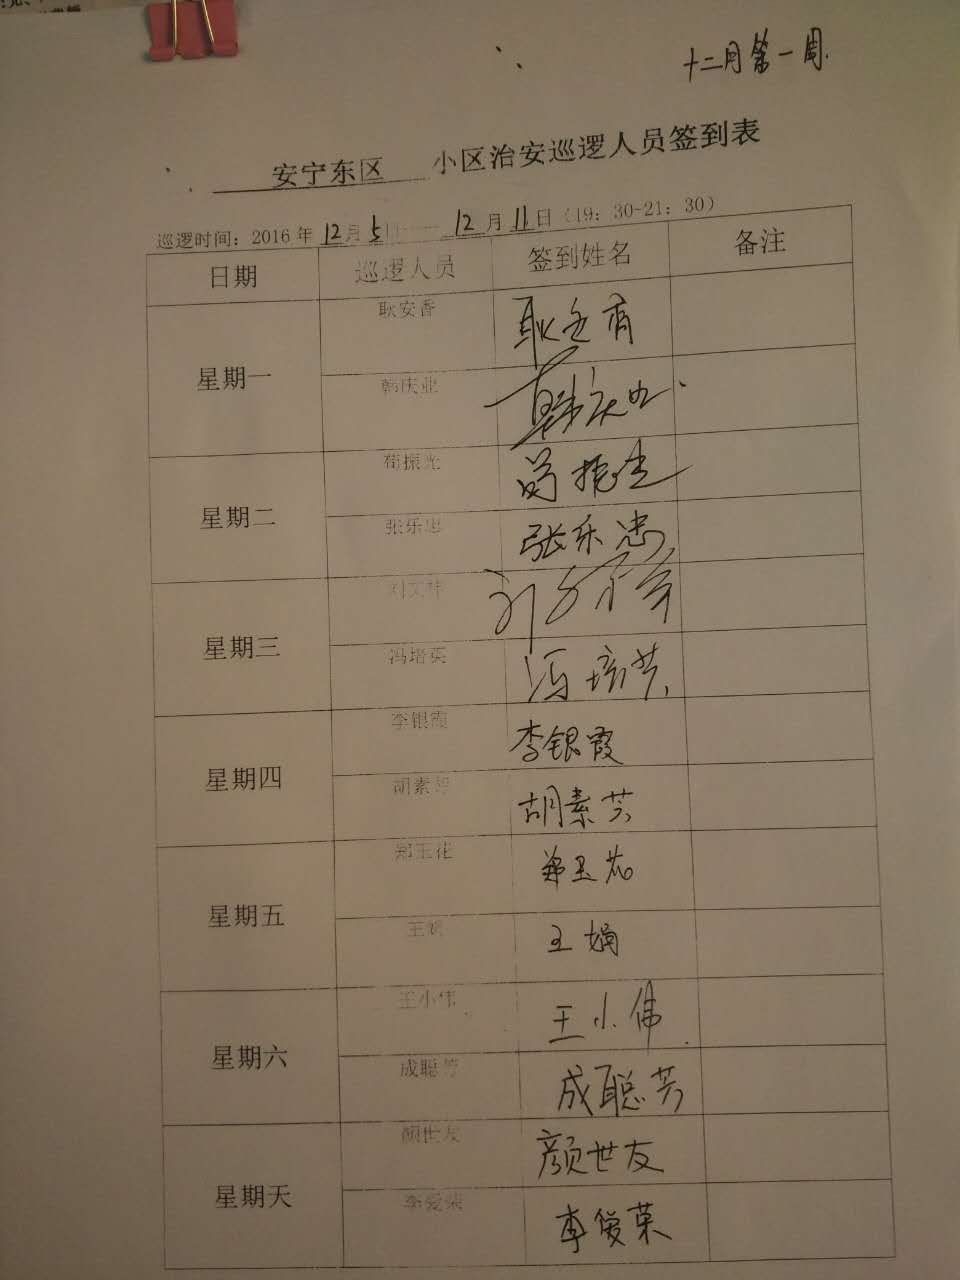 十二月第一周
安宁东区 小区治安巡逻人员签到表
巡逻时间：2016年12月5日——12月11日（19：30-21：30）
日期 巡逻人员 签到姓名 备注
星期一 耿安香
韩庆业 韩庆业
星期二 荀振光
张乐忠 张乐忠
星期三 刘文祥
冯培英
星期四 李银霞 李银霞
胡素芳 胡素芳
星期五 郑玉花 郑玉花
王娟 王娟
星期六 王小伟 王小伟
成聪芳 成聪芳
星期天 颜世友 颜世友
李爱荣 李俊荣